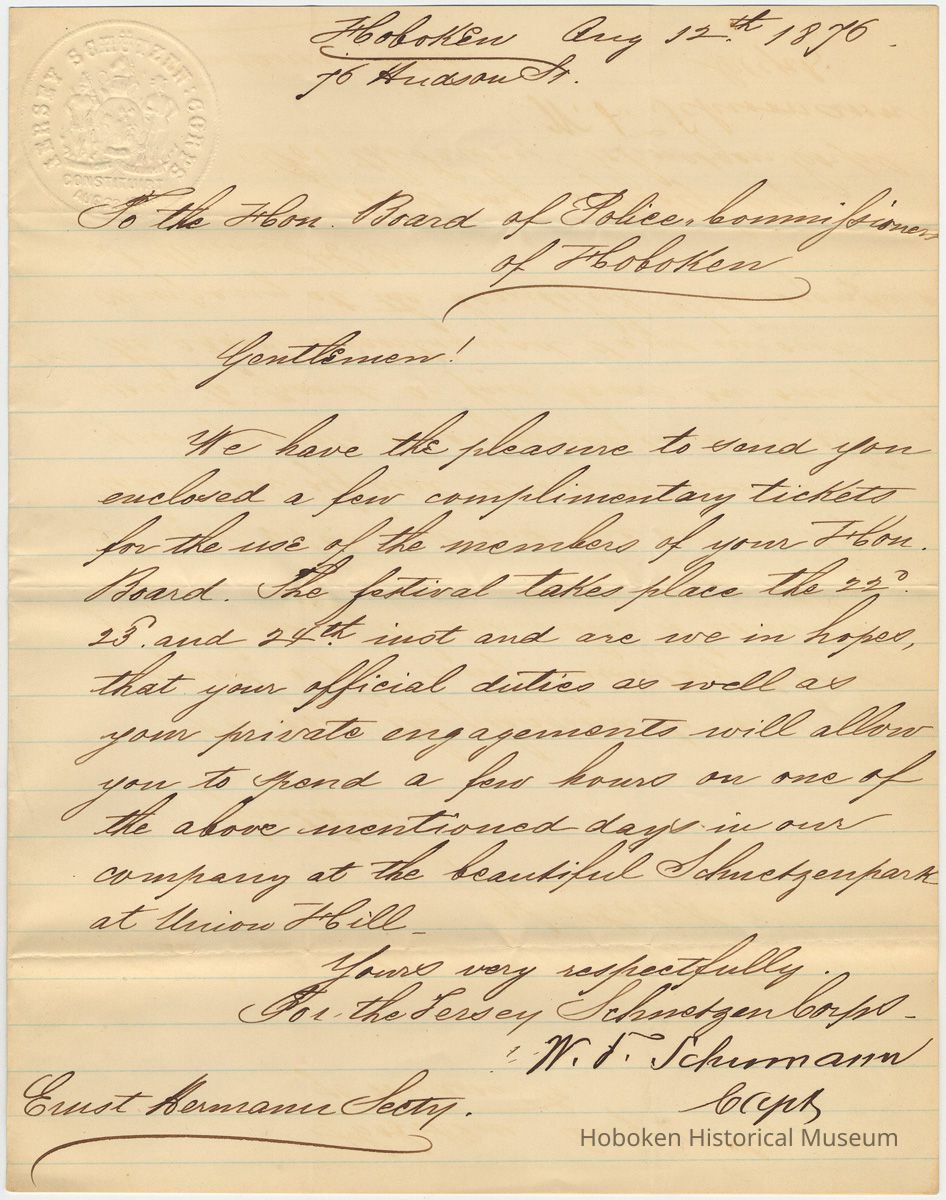 JERSEY SCHUETZEN CORPS
CONSTITUIRT
Hoboken Aug 12th 1876.
76 Hudson St.
To the Hon. Board of Police Commissioners
of Hoboken
Gentlemen!
We have the pleasure to send you
enclosed a few complimentary tickets
for the use of the members of your Hon.
Board. The festival takes place the 22d.
23d. and 24th inst and are we in hopes,
that your official duties as well as
your private engagements will allow
you to spend a few hours on one of
the above mentioned days in our
company at the beautiful Schuetzenpark
at Union Hill_
Yours very respectfully.
For the Jersey Schuetzen Corps_
W. F. Schumann
Capt
Ernst Hermann Secty.
Hoboken Historical Museum